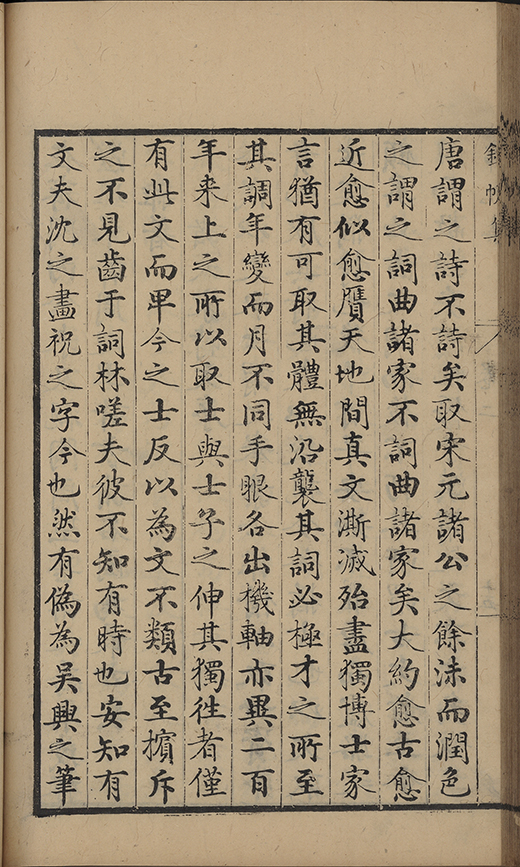 唐謂之詩不詩矣取宋元諸公之餘沫而潤色
之謂之詞曲諸家不詞曲諸家矣大約愈古愈
近愈似愈贋天地間真文澌滅殆盡獨博士家
言猶有可取其體無沿襲其詞必極才之所至
其調年變而月不同手眼各出機軸亦異二百
年来上之所以取士與士子之伸其獨徃者僅
有此文而卑今之士反以為文不類古至擯斥
之不見齒于詞林嗟夫彼不知有時也安知有
文夫沈之畫祝之字今也然有偽為吳興之筆